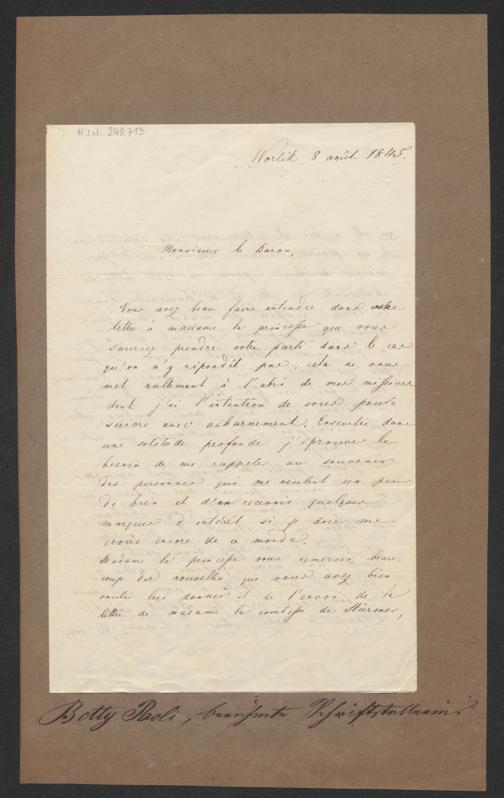 H.I.N. 248713
Worlik 8 août 1845.
Monsieur le Baron,
Vous avez beau faire entendre dans votre
lettre à madame la princesse que vous
sauriez prendre votre parti dans le cas
qu'on n'y répondit pas, cela ne vous
met nullement à l'abri de mes missives
dont j'ai l'intention de vous pour
suivre avec acharnement. Ensevelie dans
une solitude profonde j'éprouve le
besoin de me rappeler au souvenir
des personnes qui me veulent un peu
de bien et d'en recevoir quelques
marques d'intérêt si je dois me
croire encore de ce monde.
Madame la princesse vous remercie beau
coup des nouvelles que vous avez bien
voulu lui donner et de l'envoi de la
lettre de madame la comtesse de Stürmer,
Betty Paoli, berühmte Schriftstellerin